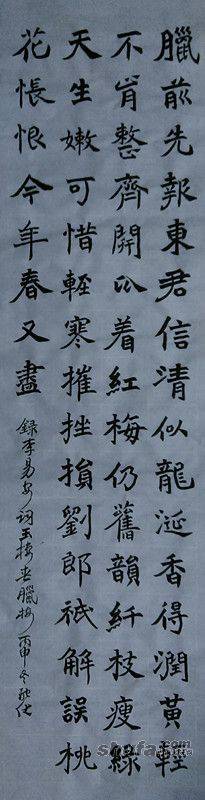 臘前先報東君信清似龍涎香得潤黃輕
不肯整齊開着紅梅仍舊韻纤枝瘦綠
天生嫩可惜輕寒摧挫損劉郎祇解誤桃
花悵恨今年春又盡
錄李易安詞玉樓春臘梅丙申冬